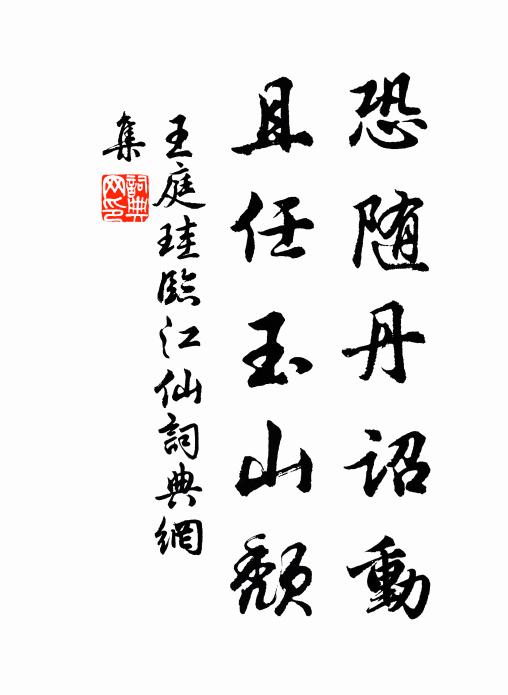 恐随丹詔動
且任玉山頹
王庭珪臨江仙詞典網
集
詞典網印